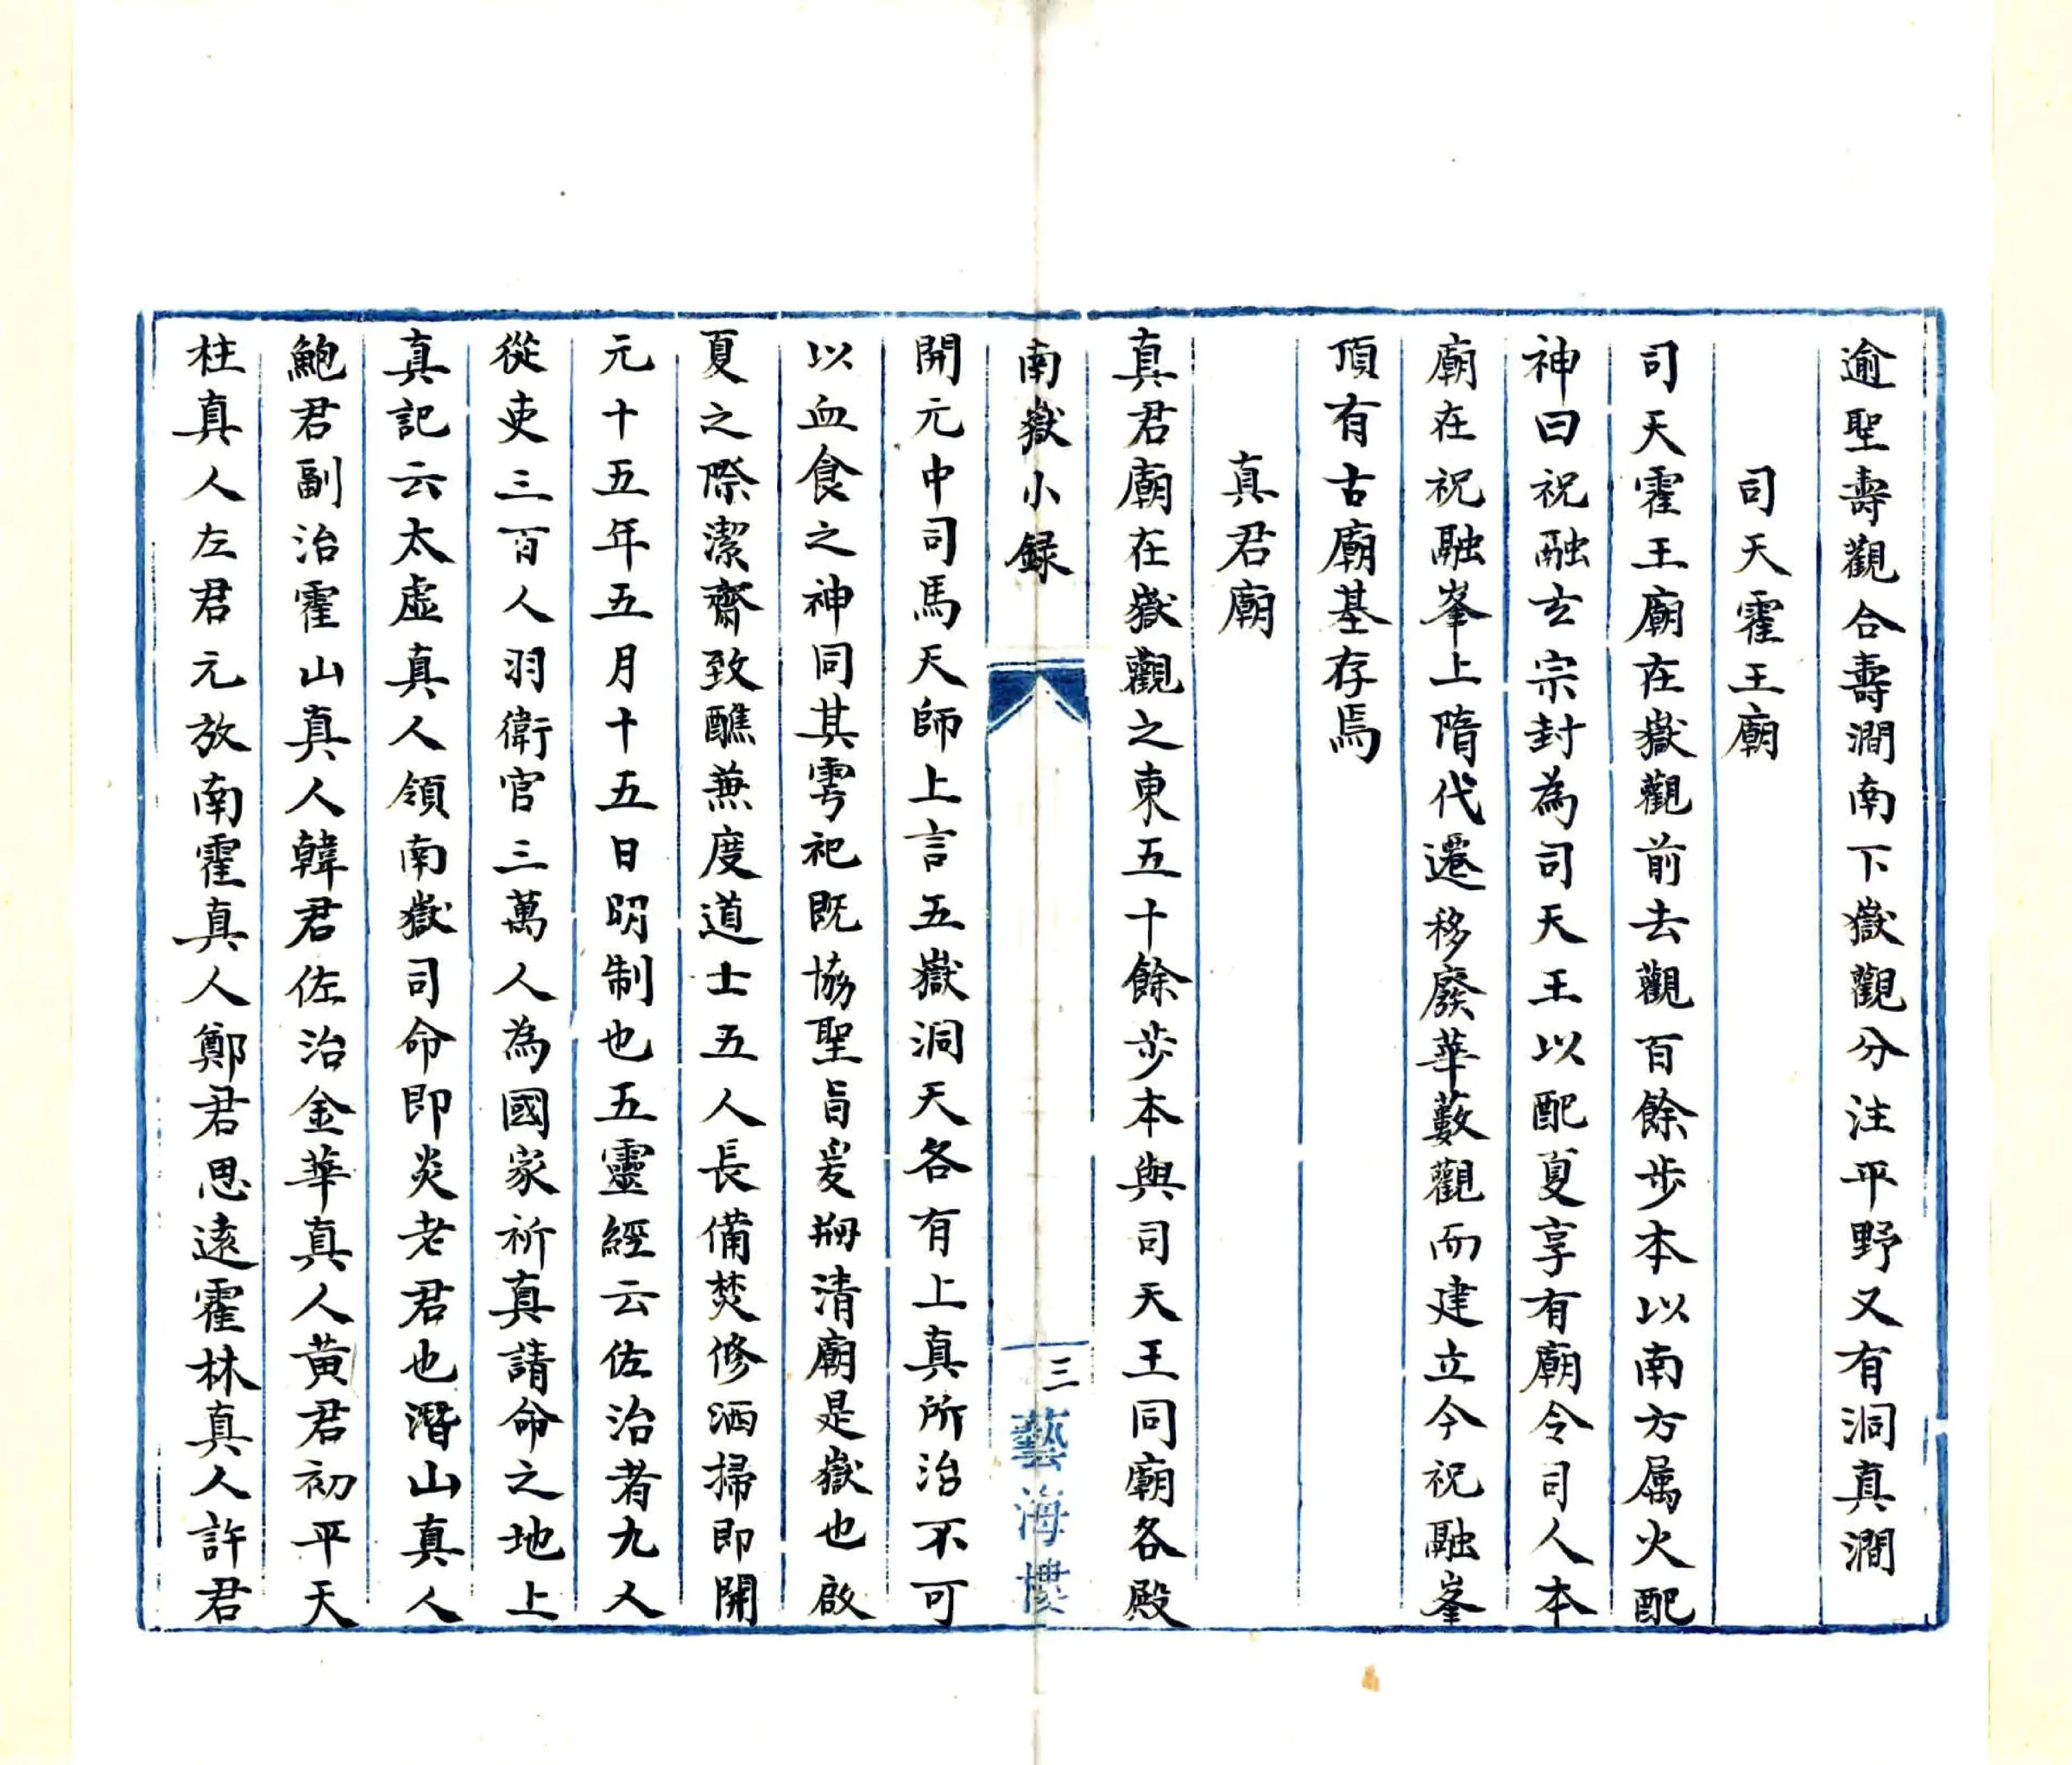 逾聖壽觀合壽澗南下嶽觀分注平野又有洞真澗
司天霍王廟
司天霍王廟在嶽觀前去觀百餘步本以南方属火配
神曰祝融玄宗封為司天王以配夏享有廟令司人本
廟在祝融峯上隋代遷移廢華藪觀而建立今祝融峯
頂有古廟基存焉
真君廟
真君廟在嶽觀之東五十餘步本與司天王同廟各殿
南嶽小録
三
藝海樓
開元中司馬天師上言五嶽洞天各有上真所治不可
以血食之神同其雩祀既協聖旨爰剏清廟是嶽也啟
夏之際潔齋致醮兼度道士五人長備焚修洒掃即開
元十五年五月十五日明制也五靈經云佐治者九人
從吏三百人羽衛官三萬人為國家祈真請命之地上
真記云太虛真人領南嶽司命即炎老君也潛山真人
鮑君副治霍山真人韓君佐治金華真人黄君初平天
柱真人左君元放南霍真人鄭君思遠霍林真人許君